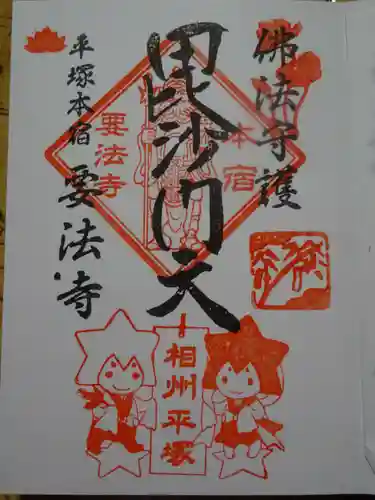 佛法守護
毘沙門天
本宿
要法寺
平塚本宿
要法寺
相州平塚